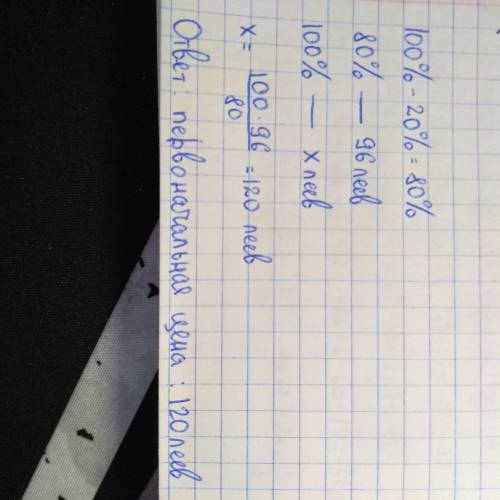 100% - 20% = 80%
80% — 96 леев
100% — х леев
x = 100 · 96 / 80 = 120 леев
Ответ: первоначальная цена: 120 леев